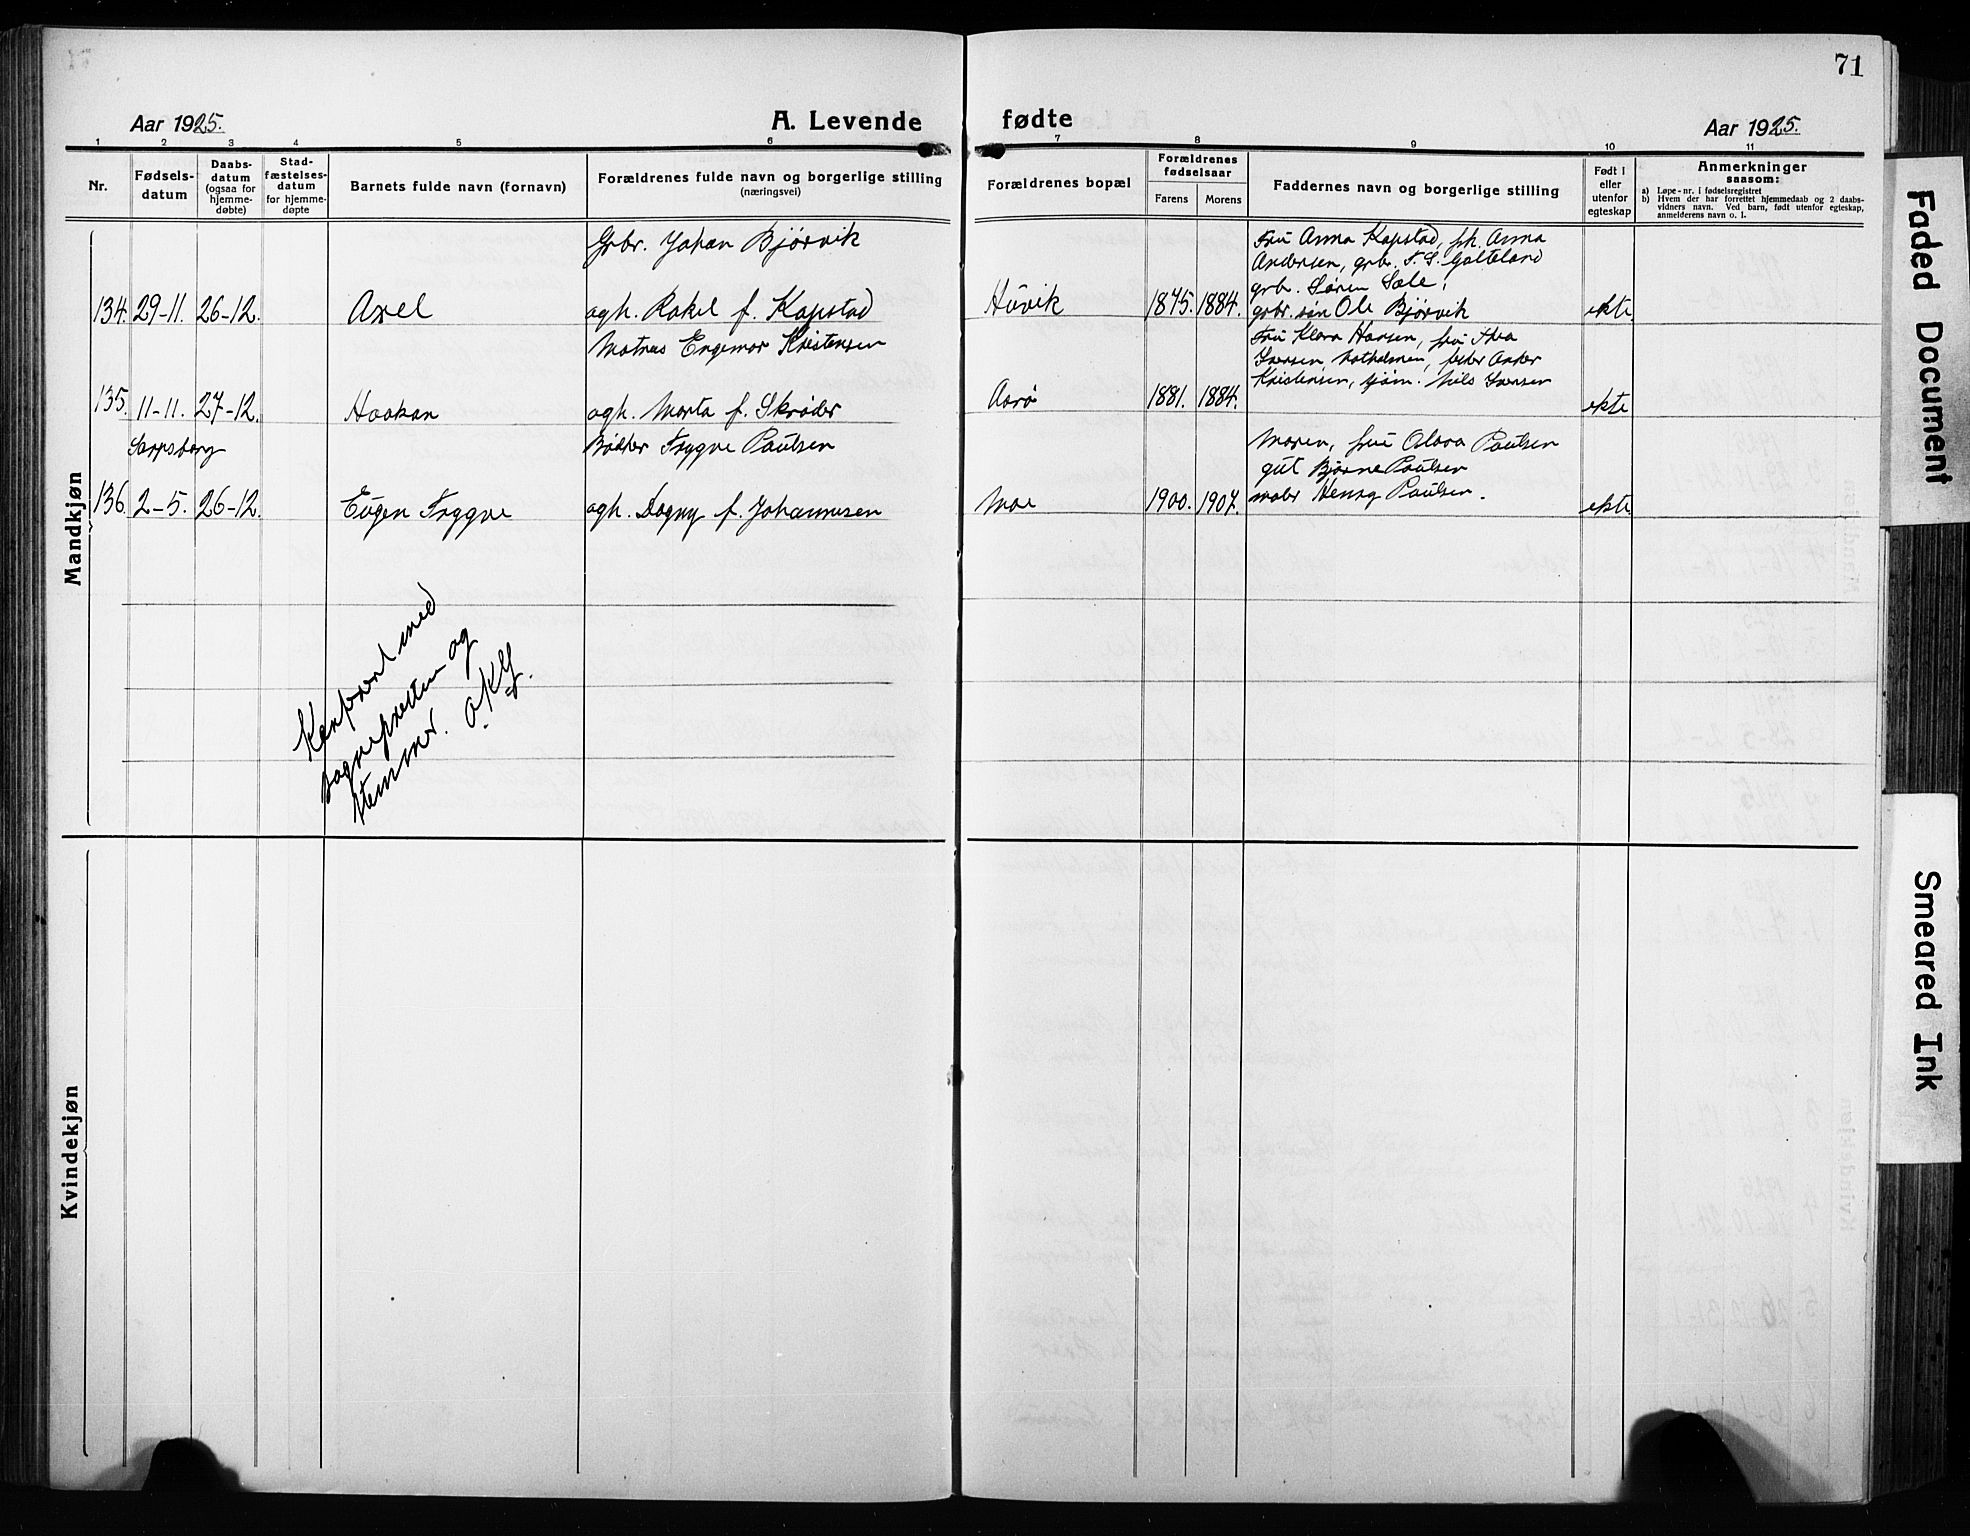 71
Aar 1925.
A. Levende fødte
Aar 1925.
1 2 3 4 5 6 7 8 9 10 11
Nr.
Fødsels-
datum
Daabs-
datum
(ogsaa for
hjemme-
døbte)
Stad-
fæstelses-
datum
for hjemme-
døpte
Barnets fulde navn (fornavn)
Forældrenes fulde navn og borgerlige stilling
(næringsvei)
Forældrenes bopæl
Forældrenes
fødselsaar
Farens Morens
Faddernes navn og borgerlige stilling
Født i
eller
utenfor
egteskap
Anmerkninger
saasom:
a) Løpe-nr. i fødselsregistret
b) Hvem der har forrettet hjemmedaab og 2 daabs-
vidners navn. Ved barn, født utenfor egteskap,
anmelderens navn o. l.
Mandkjøn
134. 29-11. 26-12. Axel
Grbr. Johan Bjørvik
og h. Rakel f. Kapstad
Hüvik 1875. 1884.
Frü Anna Kapstad, frk. Anna
Andersen, grbr. T. S. Galteland
grb. Søren Sæle,
grbr. søn Ole Bjørvik
ekte
135. 11-11. 27-12. Haakan
Matros Engemar Kristensen
og h. Marta f. Skrøder
Aarø 1881. 1884.
Frü Klara Hansen, frü Thea
Iversen, fisker Anker
Kristensen, sjøm. Nils Iversen
ekte
Sarpsborg
136. 2-5. 26-12. Eügen Tryggve
Bødker Tryggve Paülsen
og h. Dagny f. Johannesen
Moe 1900. 1907.
Moren, frü Alava Paülsen
güt Bjarne Paülsen
maler Henry Paülsen.
ekte.
Konferert med
sogneprestens og
stemmer. O.K.G.
Kvindekjøn
Faded Document
Smeared Ink